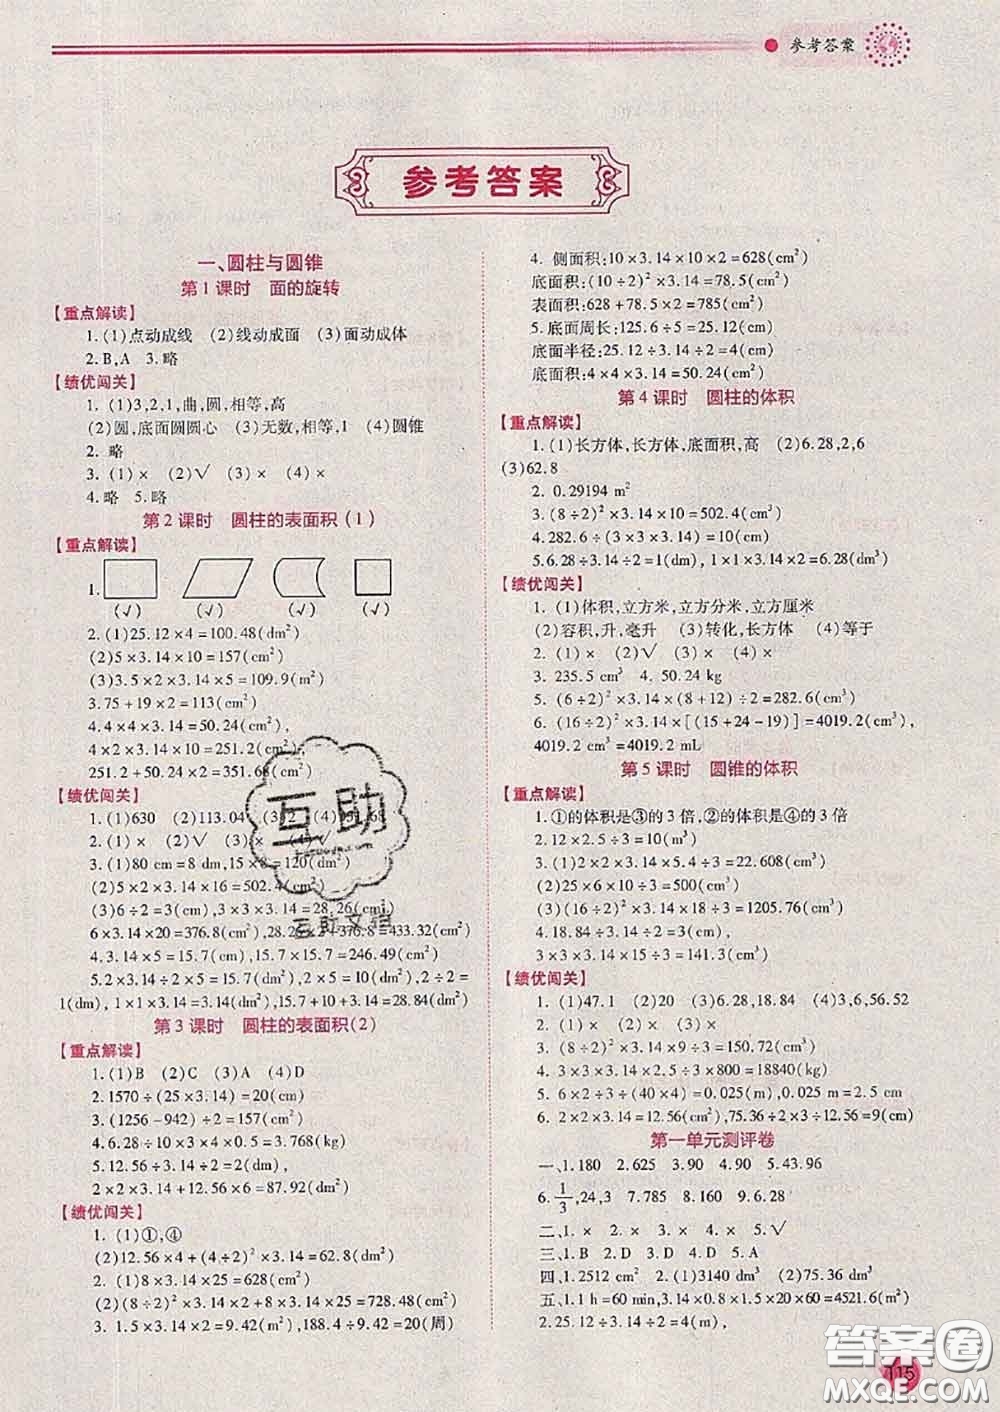 参考答案
参考答案
一、圆柱与圆锥
第1课时 面的旋转
【重点解读】
1.(1)点动成线 (2)线动成面 (3)面动成体
2.B,A 3.略
【绩优闯关】
1. (1)3,2,1,曲,圆,相等,高
(2)圆,底面圆圆心 (3)无数,相等,1 (4)圆锥
2. 略
3. (1)× (2)√ (3)× (4)×
4.略 5.略
第2课时 圆柱的表面积(1)
【重点解读】
1.
(√) (√) (√) (√)
2.(1)25.12×4=100.48(dm²)
(2)5×3.14×10=157(cm²)
(3)3.5×2×3.14×5=109.9(m²)
3.75+19×2=113(cm²)
4.4×4×3.14=50.24(cm²),
4×2×3.14×10=251.2(cm²),
251.2+50.24×2=351.68(cm²)
【绩优闯关】
1.(1)630 (2)113.04 (3)2 (4)51.68
2.(1)× (2)√ (3)× (4)×
3.(1)80 cm=8 dm,15×8=120(dm²)
(2)5×2×3.14×16=502.4(cm²)
(3)6÷2=3(cm),3×3×3.14=28.26(cm²),
6×3.14×20=376.8(cm²),28.26×2+376.8=433.32(cm²)
4.3.14×5=15.7(cm),15.7×15.7=246.49(cm²)
5.2×3.14÷2=3.14(dm²),2×5=10(dm²),2÷2=
1(dm),1×1×3.14=3.14(dm²),15.7+10+3.14=28.84(dm²)
第3课时 圆柱的表面积(2)
【重点解读】
1.(1)B (2)C (3)A (4)D
2.1570÷(25×3.14)=20(cm)
3.(1256-942)÷2=157(cm²)
4.6.28÷10×3×10×0.2=3.768(kg)
5.12.56÷3.14÷2=2(dm),
2×2×3.14+3.14×2×2×6=87.92(dm²)
【绩优闯关】
1. (1)①,④
(2)12.56×4+(4÷2)²×3.14=62.8(dm²)
2. (1)8×3.14×25=628(cm²)
(2)(8÷2)²×3.14×2+8×3.14×25=728.48(cm²)
3. 1.5×3.14×2=9.42(m),188.4÷9.42=20(周)
4. 侧面积:10×3.14×10×2=628(cm²)
底面积:(10÷2)²×3.14=78.5(cm²)
表面积:628+78.5×2=785(cm²)
5.底面周长:125.6÷5=25.12(cm)
底面半径:25.12÷3.14÷2=4(cm)
底面积:4×4×3.14=50.24(cm²)
第4课时 圆柱的体积
【重点解读】
1.(1)长方体,长方体,底面积,高 (2)6.28,2,6
(3)62.8
2. 0.29194 m²
3.(8÷2)²×3.14×10=502.4(cm³)
4.282.6÷(3×3×3.14)=10(cm)
5.6.28÷3.14÷2=1(dm),1×1×3.14×2=6.28(dm³)
【绩优闯关】
1. (1)体积,立方米,立方分米,立方厘米
(2)容积,升,毫升 (3)转化,长方体 (4)等于
2. (1)× (2)√ (3)× (4)×
3. 235.5 cm³ 4. 50.24 kg
5. (6÷2)²×3.14×(8+12)÷2=282.6(cm³)
6. (16÷2)²×3.14×[(15+24-19)]=4019.2(cm³),
4019.2 cm³=4019.2 mL
第5课时 圆锥的体积
【重点解读】
1.①的体积是③的3倍,②的体积是④的3倍
2.12×2.5÷3=10(m³)
3.(1)2×2×3.14×5.4÷3=22.608(cm³)
(2)125×12÷3=500(cm³)
(3)(16÷2)²×3.14×18÷3=1205.76(cm³)
4.18.84÷3.14÷2=3(cm),
3×3×3.14×15÷3=141.3(cm³)
【绩优闯关】
1. (1)47.1 (2)20 (3)6.28,18.84 (4)3,6,56.52
2. (1)× (2)× (3)× (4)√
3. (8÷2)²×3.14×9÷3=150.72(cm³)
4. 3×3×3.14×2.5÷3×800=18840(kg)
5. 6×2÷3÷(40×4)=0.025(m),0.025 m=2.5 cm
6. 2×2×3.14=12.56(cm²),75.36÷2×3÷12.56=9(cm)
第一单元测评卷
一、1.180 2.625 3.90 4.90 5.43.96
6.1/3,24,3 7.785 8.160 9.6.28
二、1.× 2.× 3.× 4.× 5.√
三、1.B 2.D 3.D 4.D 5.A
四、1.2512 cm² 2.(1)3140 dm³ (2)75.36 dm³
五、1.1 h=60 min,3.14×0.8×1.5×20×60=4521.6(m²)
2.25.12÷3.14÷2=4(m),
115
互助
互助文馆
答案圈
MXQE.COM